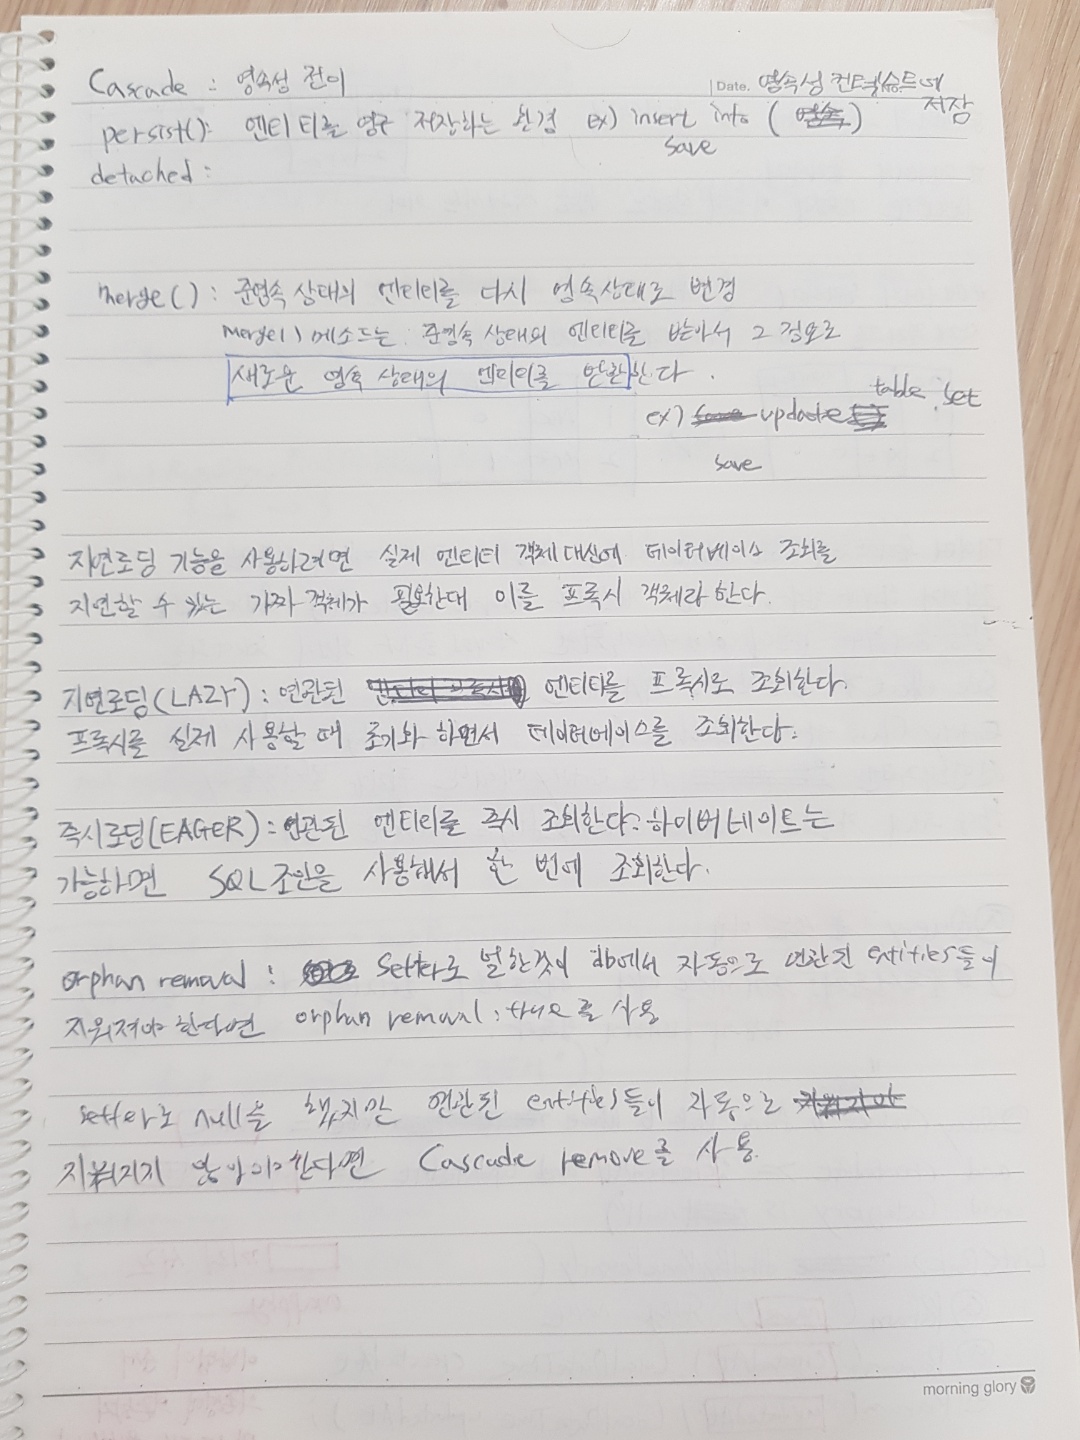 Cascade : 영속성 전이
Date. 영속성 컨텍슽트에
저장
persist(): 엔티티를 영구 저장하는 환경 ex) insert into ( )
save
detached :
merge() : 준영속 상태의 엔티티를 다시 영속상태로 변경
merge() 메소드는 준영속 상태의 엔티티를 받아서 그 정보로
새로운 영속 상태의 엔티티를 반환한다.
ex) update table set
save
지연로딩 기능을 사용하려면 실제 엔티티 객체 대신에 데이터베이스 조회를
지연할 수 있는 가짜 객체가 필요한대 이를 프록시 객체라 한다.
지연로딩(LAZY) : 연관된 엔티티를 프록시로 조회한다.
프록시를 실제 사용할 때 초기화 하면서 데이터베이스를 조회한다.
즉시로딩(EAGER) : 연관된 엔티티를 즉시 조회한다. 하이버네이트는
가능하면 SQL 조인을 사용해서 한 번에 조회한다.
orphan removal : setter로 널한것이 db에서 자동으로 연관된 entities들이
지워져야 한다면 orphan removal : true를 사용
setter로 null을 했지만 연관된 entities들이 자동으로
지워지지 않아야한다면 Cascade remove를 사용.
morning glory